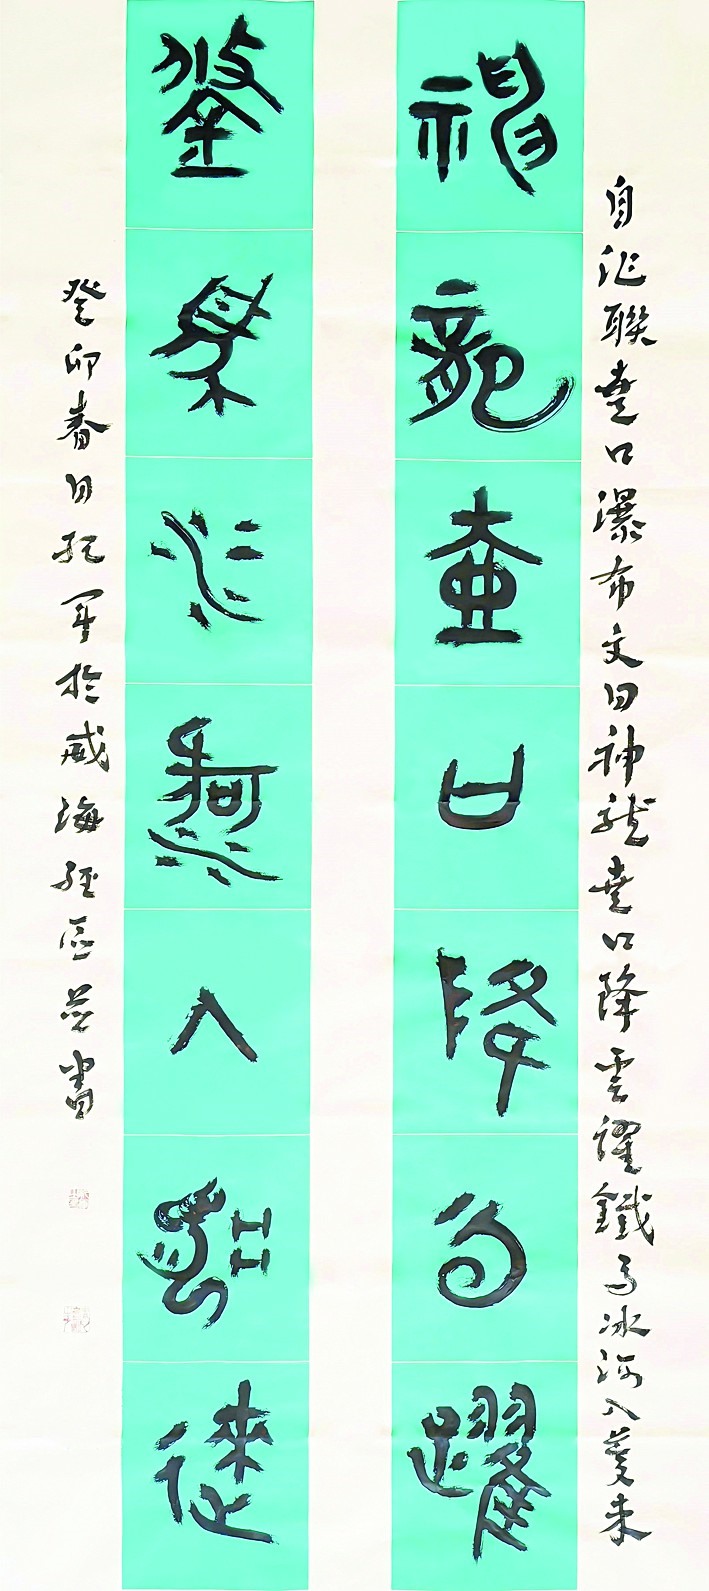 自作聯壺口瀑布文曰神龍壺口降雲躍鐵馬冰河入夢來
神龍壺口降云躍
鐵馬冰河入夢來
癸卯春日軍於威海經區並書